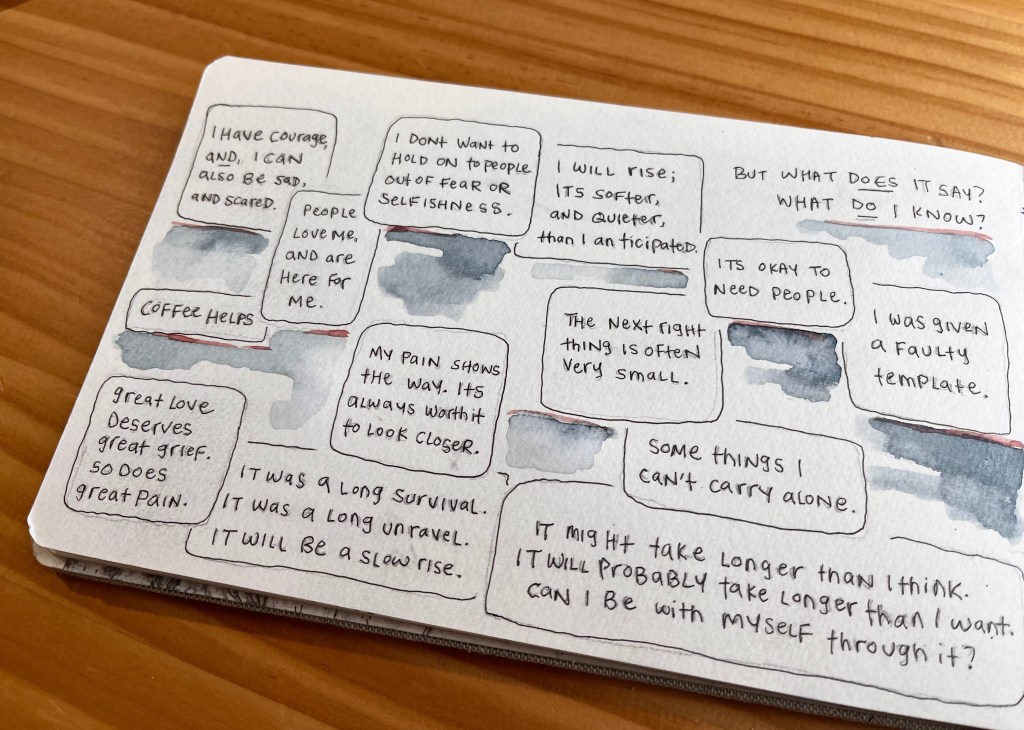 I Have courage,
AND, I CAN
also Be sad,
AND scared.
PEOPLE
Love me,
AND are
Here For
me.
I DONT WANT TO
HOLD ON to people
out of fear or
selfishness.
I WILL rise;
ITS SOFTER,
AND QUIETER,
than I anticipated.
BUT WHAT DOES IT SAY?
WHAT DO I KNOW?
ITS OKAY TO
NEED PEOPLE.
COFFEE HELPS
MY PAIN SHOWS
the way. Its
always worth it
to LOOK CLOSER.
THE Next right
thing is often
very small.
I was given
a FAULTY
template.
great Love
Deserves
great grief.
SO DOES
great PAIN.
SOME things I
can't carry alone.
IT was a Long survival.
IT was a Long unravel.
IT WILL Be a slow rise.
IT might take Longer than I think.
IT WILL PROBABLY take Longer than I want.
CAN I Be with myself through it?